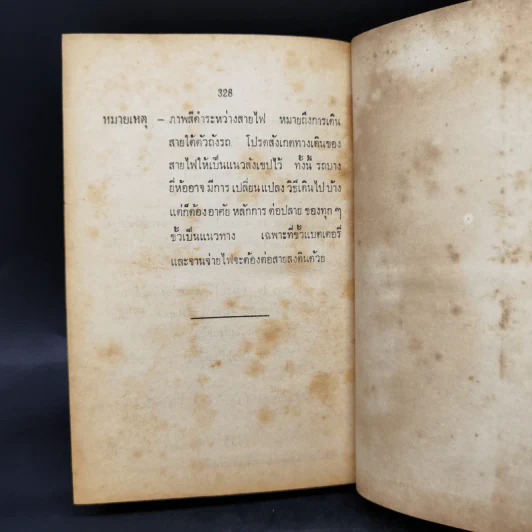 328
หมายเหตุ – ภาพสีดำระหว่างสายไฟ หมายถึงการเดิน
สายใต้ตัวถังรถ โปรดสังเกตทางเดินของ
สายไฟให้เป็นแนวสังเขปไว้ ทั้งนี้ รถบาง
ยี่ห้ออาจ มีการ เปลี่ยนแปลง วิธีเดินไป บ้าง
แต่ก็ต้อง อาศัย หลักการ ต่อปลาย ของทุก ๆ
ขั้วเป็นแนวทาง เฉพาะที่ขั้วแบตเตอรี่
และจานจ่ายไฟจะต้องต่อสายลงดินด้วย